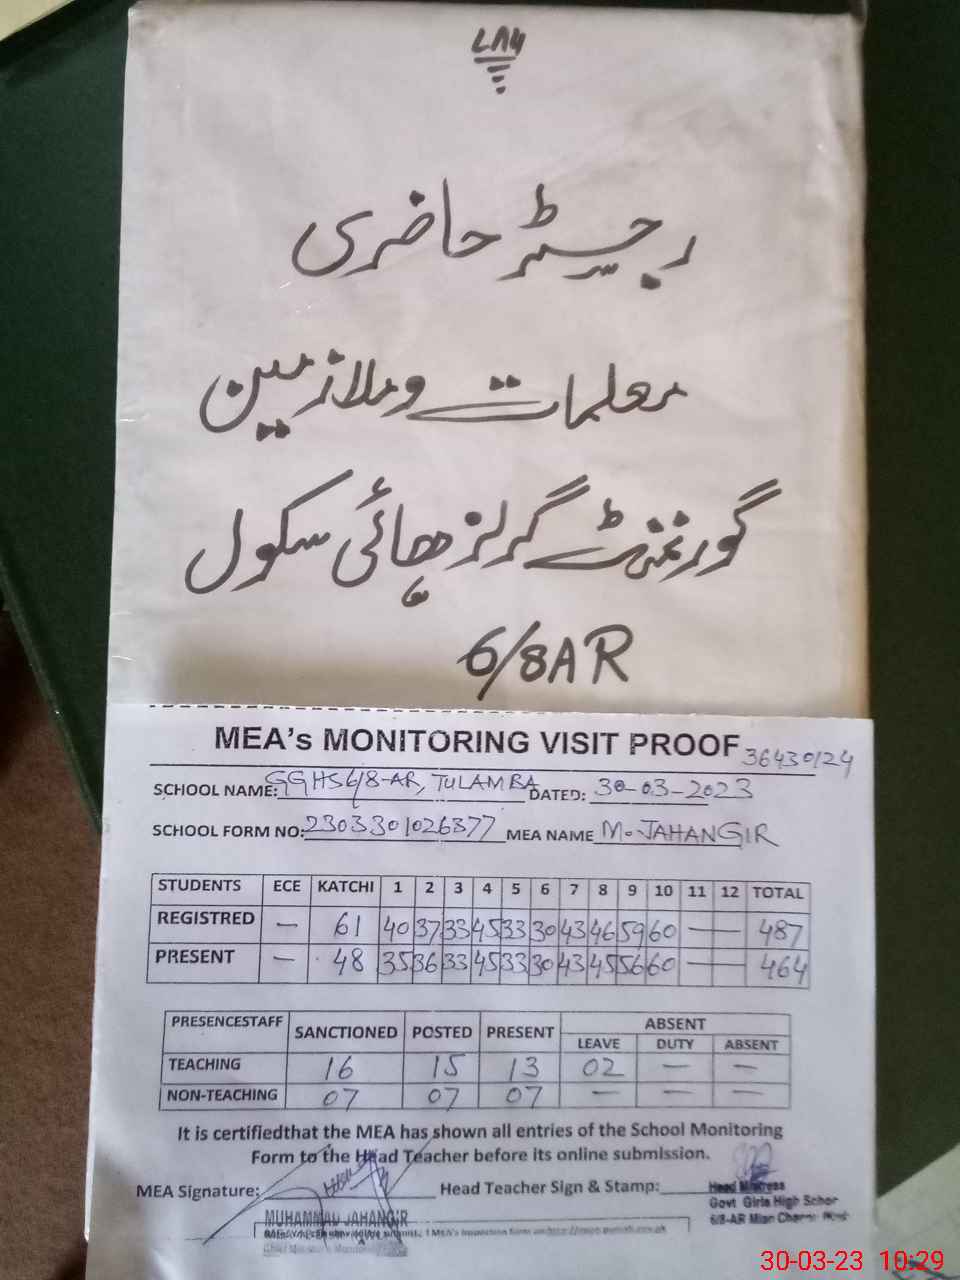 ۷۸۶
رجسٹر حاضری
معلمات و ملازمین
گورنمنٹ گرلز ہائی سکول
6/8AR
MEA's MONITORING VISIT PROOF 36430124
SCHOOL NAME: GGHS 6/8-AR, TULAMBA DATED: 30-03-2023
SCHOOL FORM NO: 2303301026377 MEA NAME M. JAHANGIR
STUDENTS ECE KATCHI 1 2 3 4 5 6 7 8 9 10 11 12 TOTAL
REGISTRED — 61 40 37 33 45 33 30 43 46 59 60 — — 487
PRESENT — 48 35 36 33 45 33 30 43 45 56 60 — — 464
PRESENCESTAFF SANCTIONED POSTED PRESENT ABSENT
LEAVE DUTY ABSENT
TEACHING 16 15 13 02 — —
NON-TEACHING 07 07 07 — — —
It is certifiedthat the MEA has shown all entries of the School Monitoring
Form to the Head Teacher before its online submission.
MEA Signature: Head Teacher Sign & Stamp:
Head Mistress
Govt Girls High School
6/8-AR Mian Channu
MUHAMMAD JAHANGIR
30-03-23 10:29